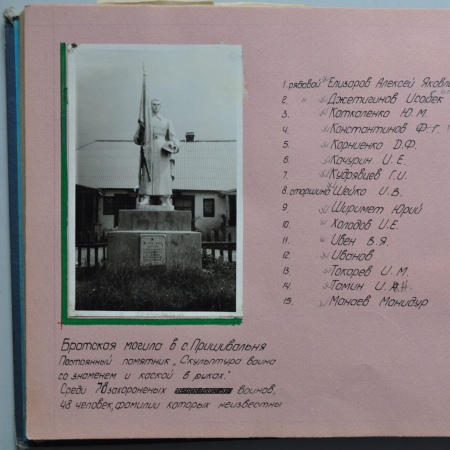 1. рядовой Елизаров Алексей Яковл
2. " Джетигинов Исабек
3. Каткаленко Ю. М.
4. Константинов Ф-г.
5. Корниенко Д.Ф.
6. Качурин И. Е.
7. Кудрявцев Г.И.
8. старшина Шейко И.В.
9. Ширимет Юрий
10. Холодов И.Е.
11. Ивен В.Я.
12. Иванов
13. Токарев И. М.
14. Томин И.
15. Манаев Манидур
Братская могила в с. Пришивальня
Постоянный памятник „Скульптура воина
со знаменем и каской в руках."
Среди 70 захороненых воинов,
48 человек, фамилии которых неизвестны